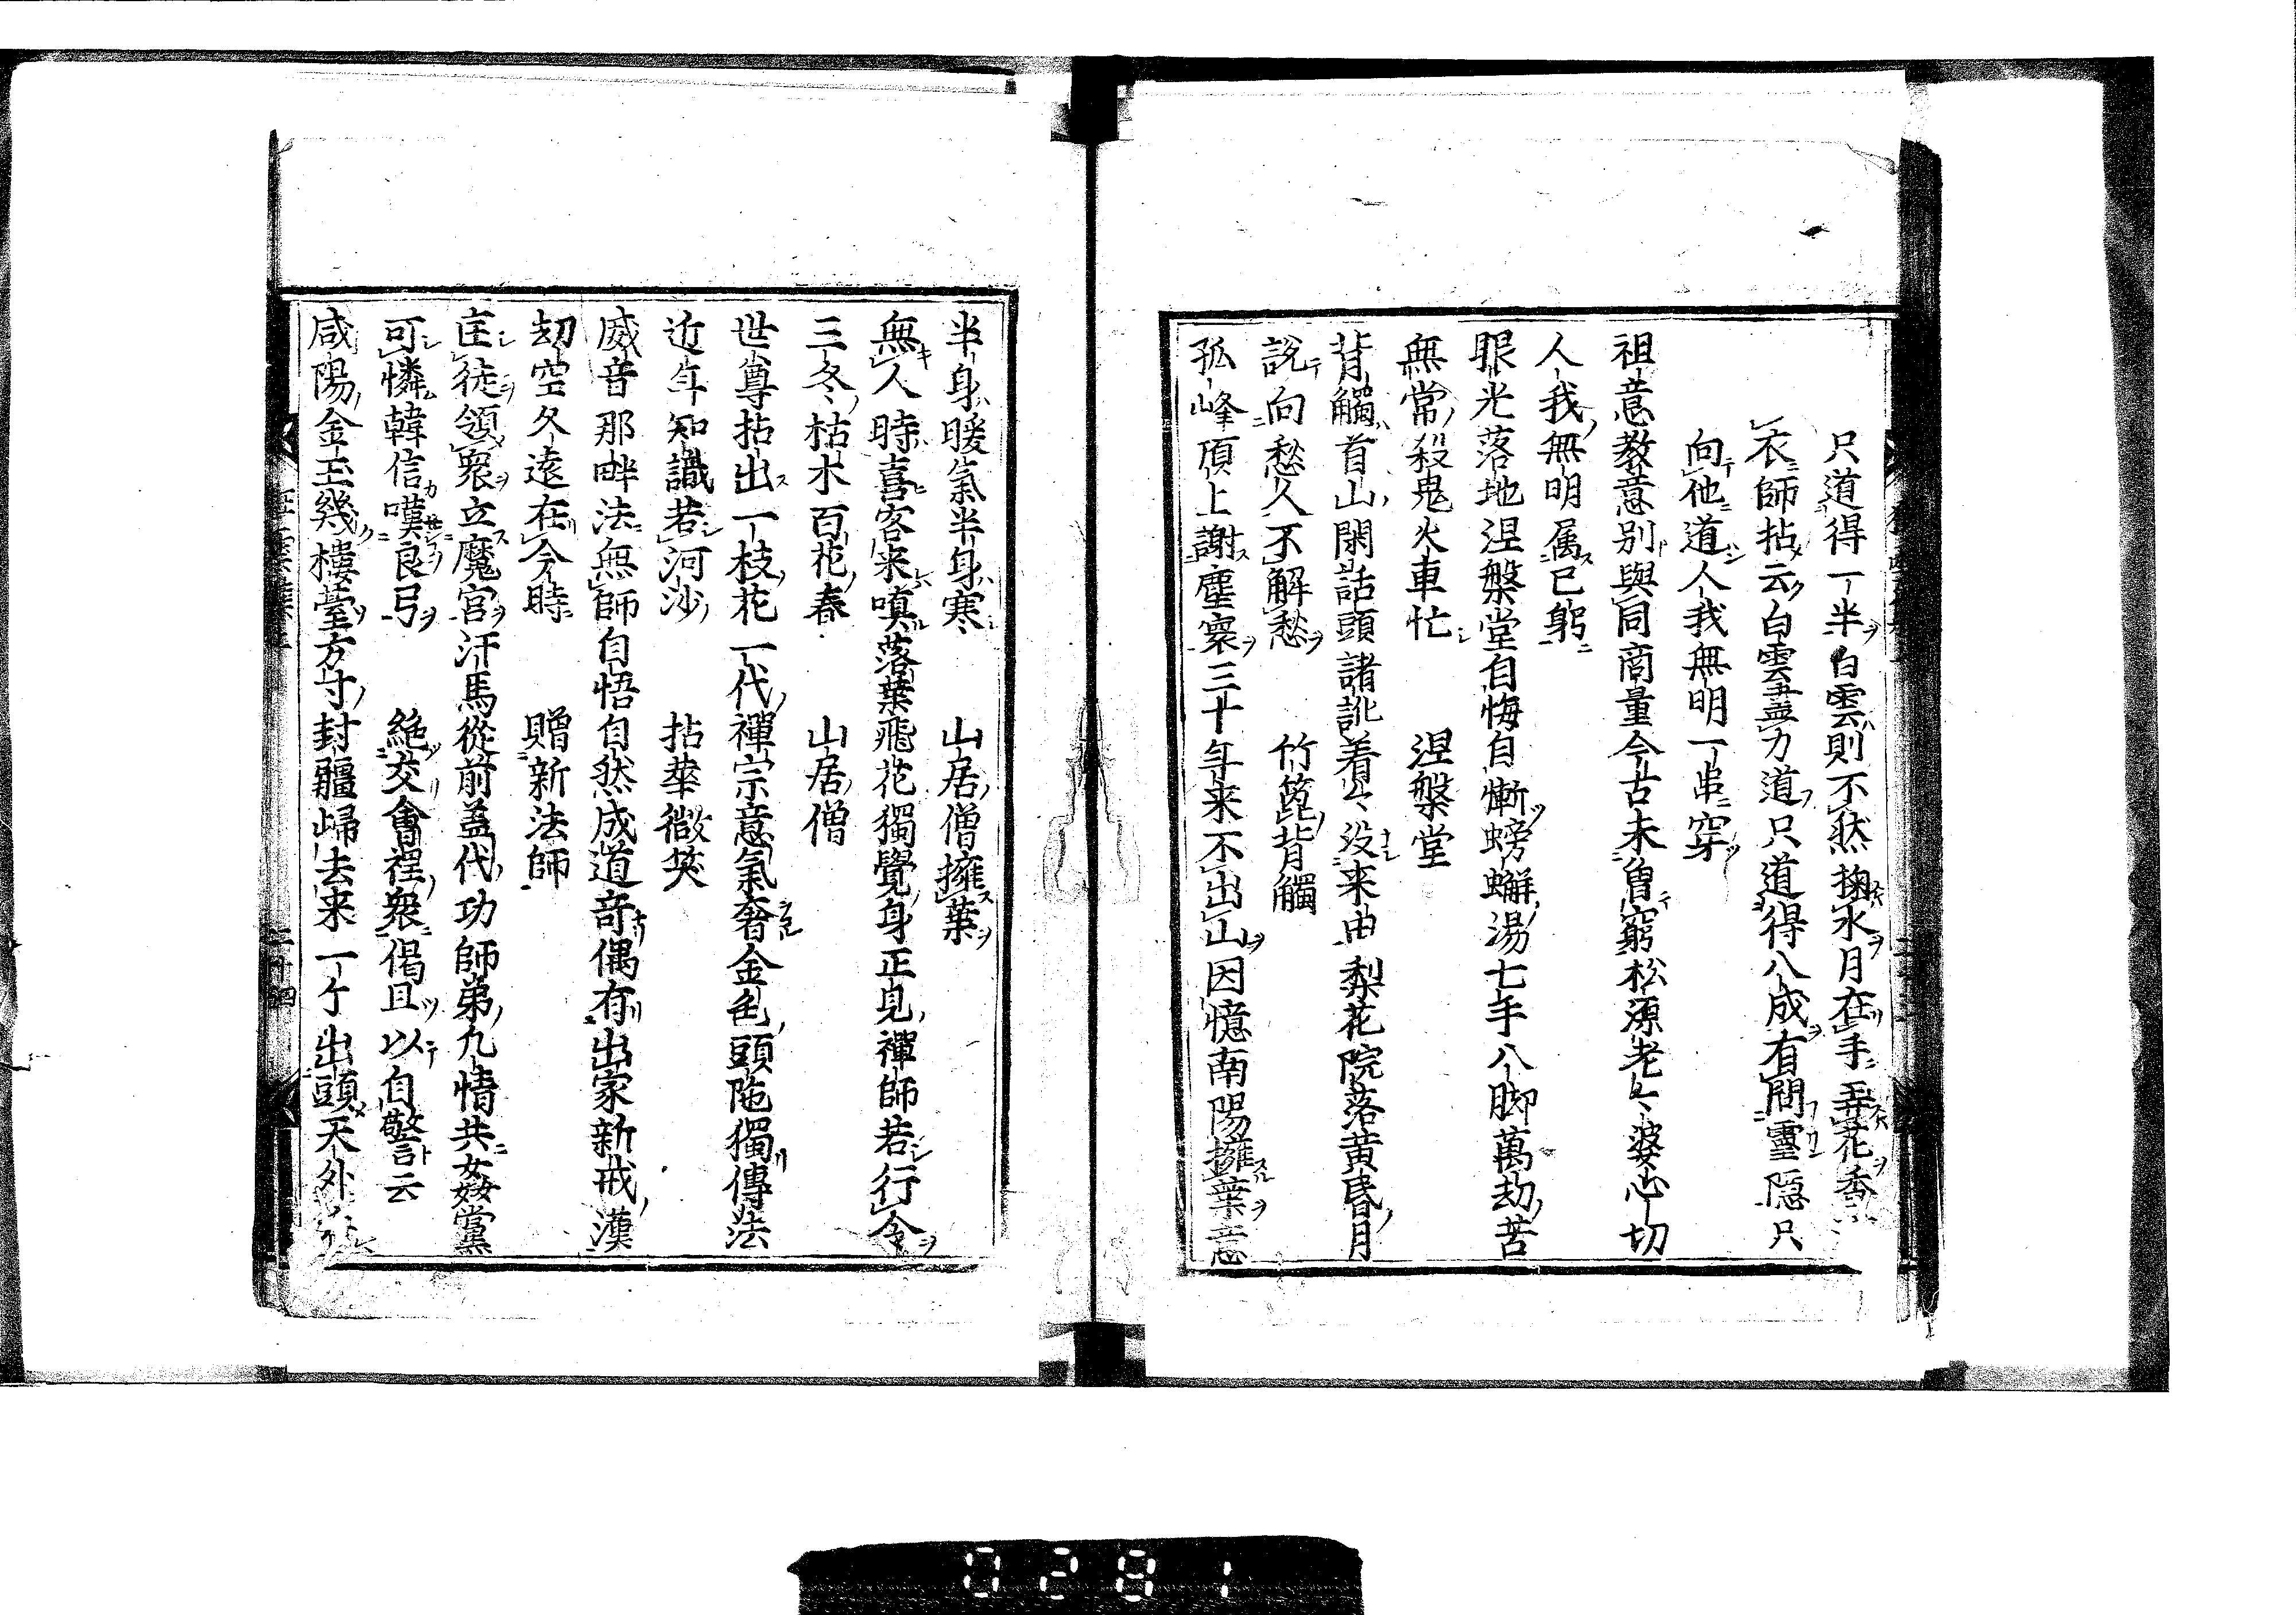 只道得一半白雲則不然掬水月在手弄花香
衣師拈云白雲盡力道只道得八成有問靈隱只
向他道人我無明一串穿
祖意教意別與同商量今古未曾窮松源老々婆心切
人我無明属已躬
眼光落地涅槃堂自悔自慚螃蠏湯七手八脚萬劫苦
無常殺鬼火車忙　涅槃堂
背觸首山閑話頭諸訛着々没来由梨花院落黄昏月
説向愁人不解愁　竹篦背觸
孤峰頂上謝塵寰三十年来不出山因憶南陽擁葉意
半身暖氣半身寒　山居僧擁葉
無人時喜客来嗔落葉飛花獨覺身正見禪師若行令
三冬枯木百花春　山居僧
世尊拈出一枝花一代禪宗意氣奢金色頭陁獨傳法
近年知識若河沙　拈華微笑
威音那畔法無師自悟自然成道奇偶有出家新戒漢
劫空久遠在今時　贈新法師
匡徒領衆立魔宮汗馬從前盖代功師弟九情共姦黨
可憐韓信嘆良弓　絶交會裡衆偈且以自警云
咸陽金玉幾樓臺方寸封疆歸去来一ケ出頭天外
二十四
0281